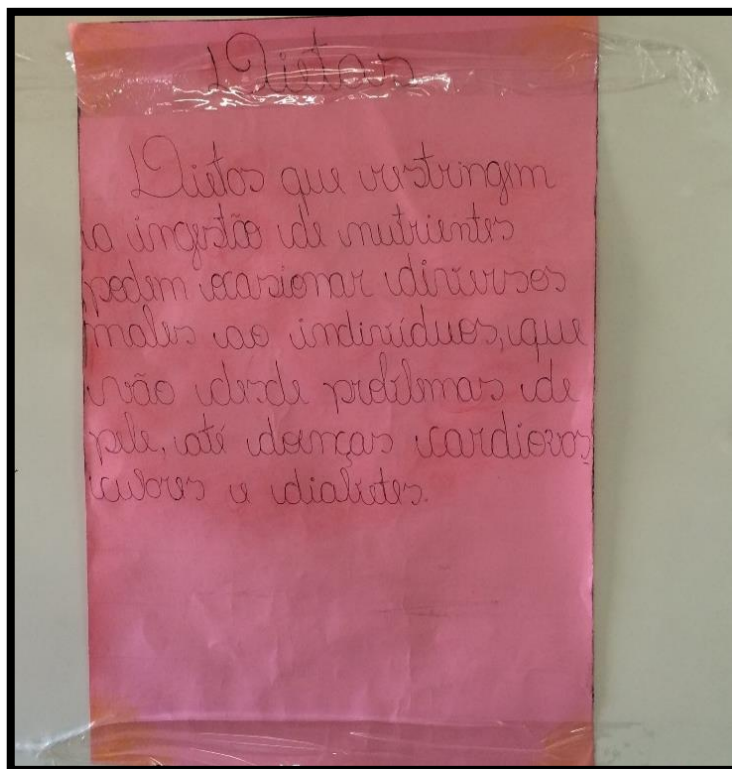 Dietas
Dietas que restringem
a ingestão de nutrientes
podem ocasionar diversos
males ao indivíduos, que
vão desde problemas de
pele, até doenças cardiovas
culares e diabetes.